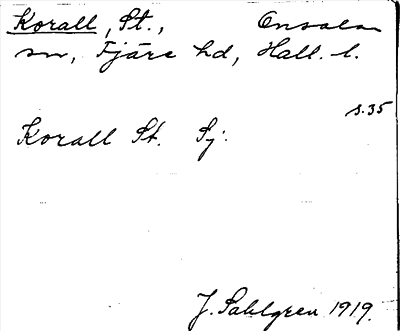 Korall, St., Onsala
sn, Fjäre hd, Hall. l.
s. 35
Korall St. Sj.
J. Sahlgren 1919.